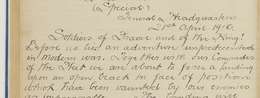 (Special)
General Headquarters
21st April 1915.
Soldiers of France and of the King!
Before us lies an adventure unprecedented
in modern war. Together with our comrades
of the Fleet we are about to force a landing
upon an open beach in face of positions
which have been vaunted by our enemies
as impregnable. The landing will